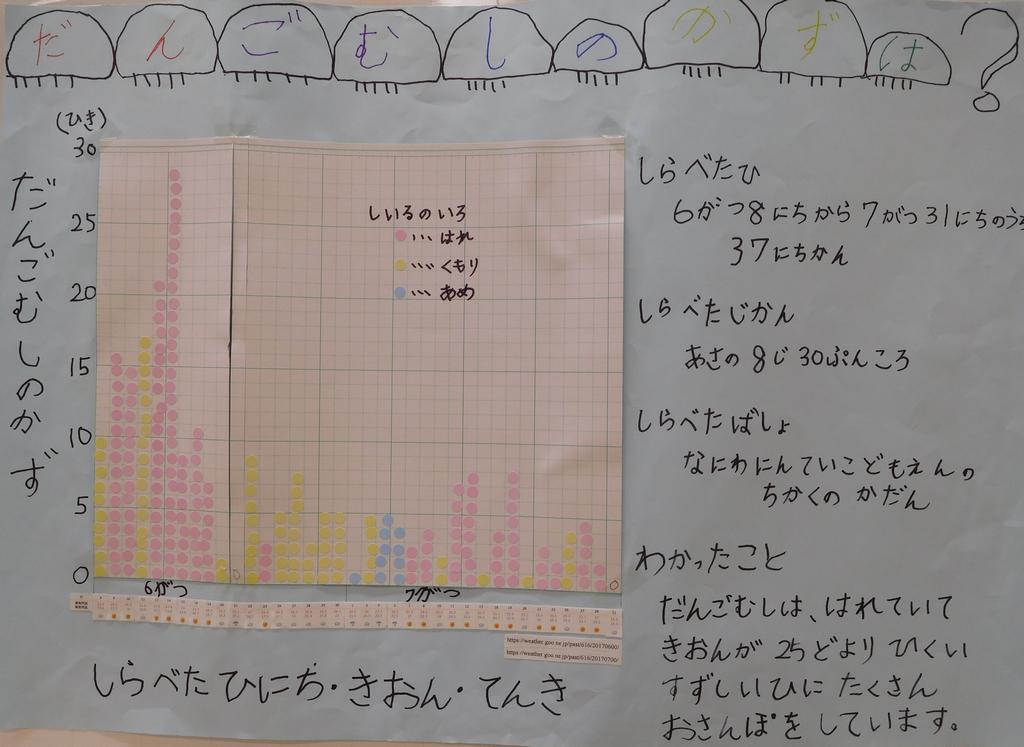 だんごむしのかずは?
(ひき)
30
25
20
15
10
5
0
だんごむしのかず
しいるのいろ
… はれ
…. くもり
… あめ
0
0
6がつ
7がつ
https://weather.goo.ne.jp/past/616/20170600/
https://weather.goo.ne.jp/past/616/20170700/
しらべたひにち・きおん・てんき
しらべたひ
6がつ8にちから7がつ31にちのうち
37にちかん
しらべたじかん
あさの8じ30ぷんころ
しらべたばしょ
なにわにんていこどもえんの
ちかくの かだん
わかったこと
だんごむしは、はれていて
きおんが 25どより ひくい
すずしいひに たくさん
おさんぽを しています。